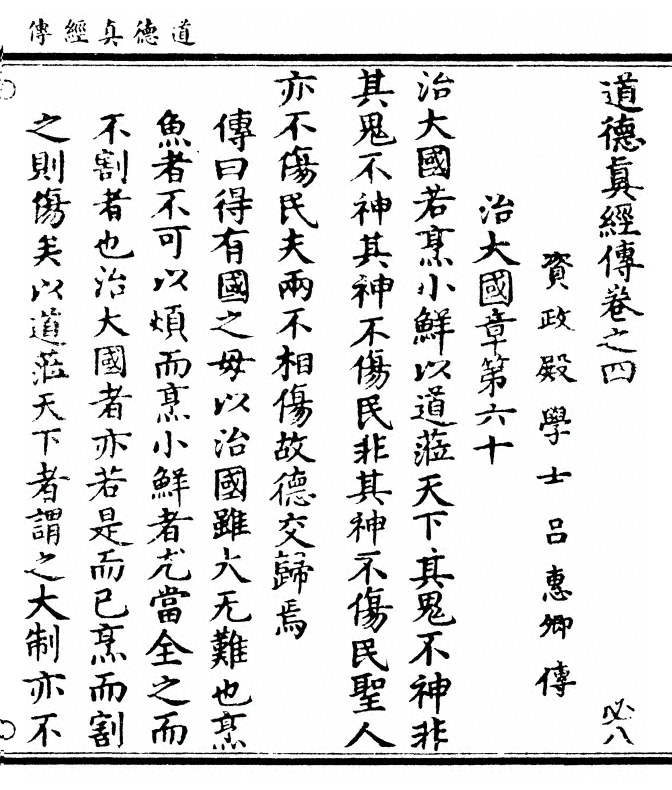 道德真經傳
道德眞經傳卷之四
必八
資政殿學士呂惠卿傳
治大國章第六十
治大國若烹小鮮以道蒞天下其鬼不神非
其鬼不神其神不傷民非其神不傷民聖人
亦不傷民夫兩不相傷故德交歸焉
傳曰得有國之母以治國雖大无難也烹
魚者不可以煩而烹小鮮者尤當全之而
不割者也治大國者亦若是而已烹而割
之則傷矣以道蒞天下者謂之大制亦不